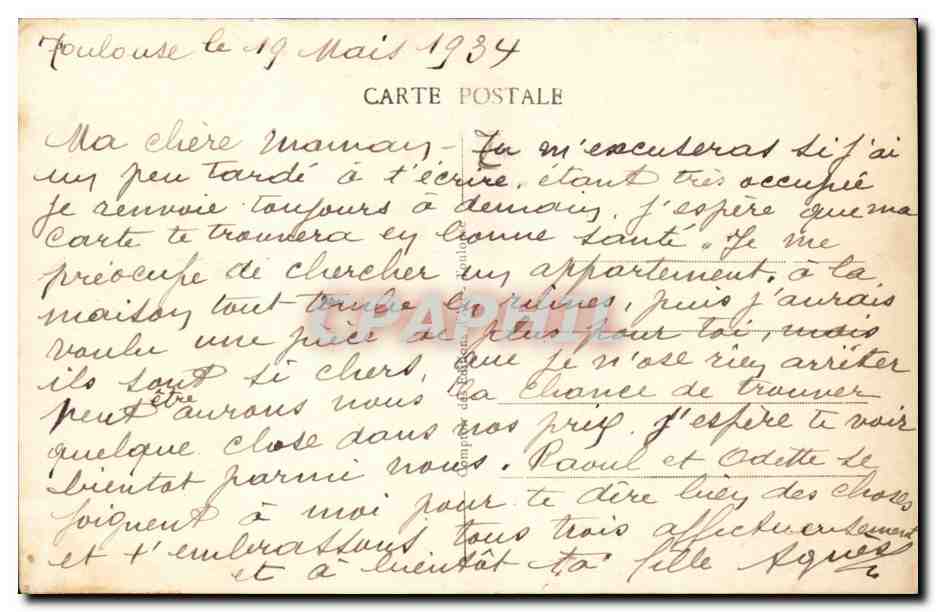 Toulouse le 19 Mais 1934
CARTE POSTALE
Ma chère Maman - Tu m'excuseras si j'ai
un peu tardé à t'écrire, étant très occupée
je renvoie toujours à demain, j'espère que ma
carte te trouvera en bonne santé. Je me
préocupe de chercher un appartement, à la
maison tout tombe en ruines, puis j'aurais
voulu une pièce de plus pour toi, mais
ils sont si chers, que je n'ose rien arrêter
peut être aurons nous la chance de trouver
quelque chose dans nos prix. J'espère te voir
bientot parmi nous. Raoul et Odette se
joignent à moi pour te dire bien des choses
et t'embrassons tous trois affectueusement
et à bientôt ta fille Agnès
Comptoir des Editions Toulouse
CPAPHIL